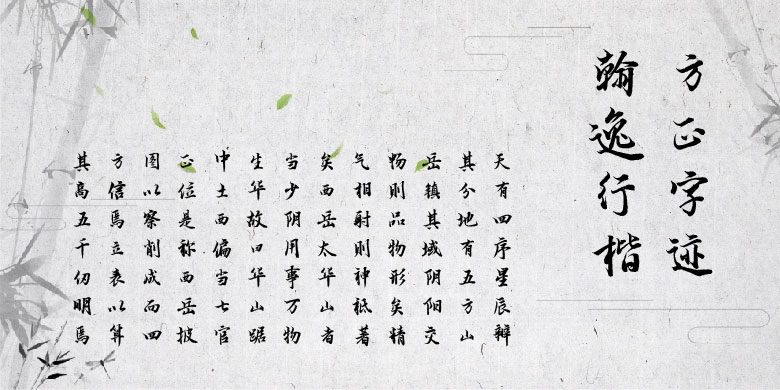 方正字迹
翰逸行楷
天有四序星辰辩
其分地有五方山
岳镇其域阴阳交
畅则品物形矣精
气相射则神祗著
矣西岳太华山者
当少阴用事万物
生华故曰华山踞
中土西偏当七官
正位是称西岳披
图以察削成而四
方信焉立表以算
其高五千仞明焉